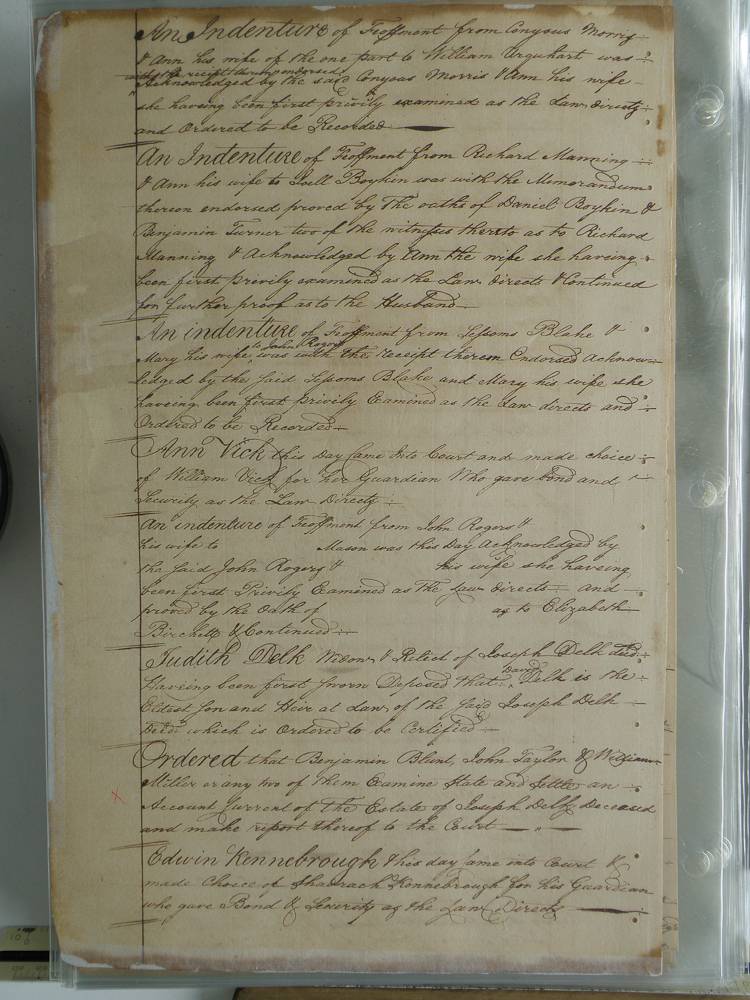 An Indenture of Feoffment from Conyous Morris
& Ann his wife of the one part to William Urquhart was
with the receipt thereon endorsed
Acknowledged by the said Conyous Morris & Ann his wife
she having been first privily examined as the Law directs
and Ordered to be Recorded
An Indenture of Feoffment from Richard Manning
& Ann his wife to Joell Boykin was with the Memorandum
thereon endorsed proved by The oaths of Daniel Boykin &
Benjamin Turner two of the witnesses thereto as to Richard
Manning & Acknowledged by Ann the wife she haveing
been first Previly examined as the Law directs & Continued
for further proof as to the Husband
An indenture of Feoffment from Sessoms Blake &
to John Rogers
Mary his wife was with the receipt thereon Endorsed Acknow-
ledged by the said Sessoms Blake and Mary his wife she
haveing been first privily Examined as the Law directs and
Ordered to be Recorded
Ann Vick this Day Came Into Court and made choice
of William Vick for her Guardian Who gave bond and
Security as the Law Directs
An indenture of Feoffment from John Rogers &
his wife to Mason was this Day Acknowledged by
the said John Rogers & his wife she haveing
been first Privily Examined as The Law directs and
proved by the Oath of as to Elizabeth
Birchett & Continued
Judith Delk Widow & Relict of Joseph Delk decd.
Haveing been first sworn Deposed that David Delk is the
Eldest son and Heir at Law of the said Joseph Delk
Decd. which is Ordered to be Certified
Ordered that Benjamin Blunt, John Taylor & William
Miller or any two of them Examine State and Settle an
Account Current of the Estate of Joseph Delk Deceased
and make report thereof to the Court
Edwin Kennebrough this day came into Court &
made Choice of Shadrach Kennebrough for his Guardian
who gave Bond & Security as the Law Directs